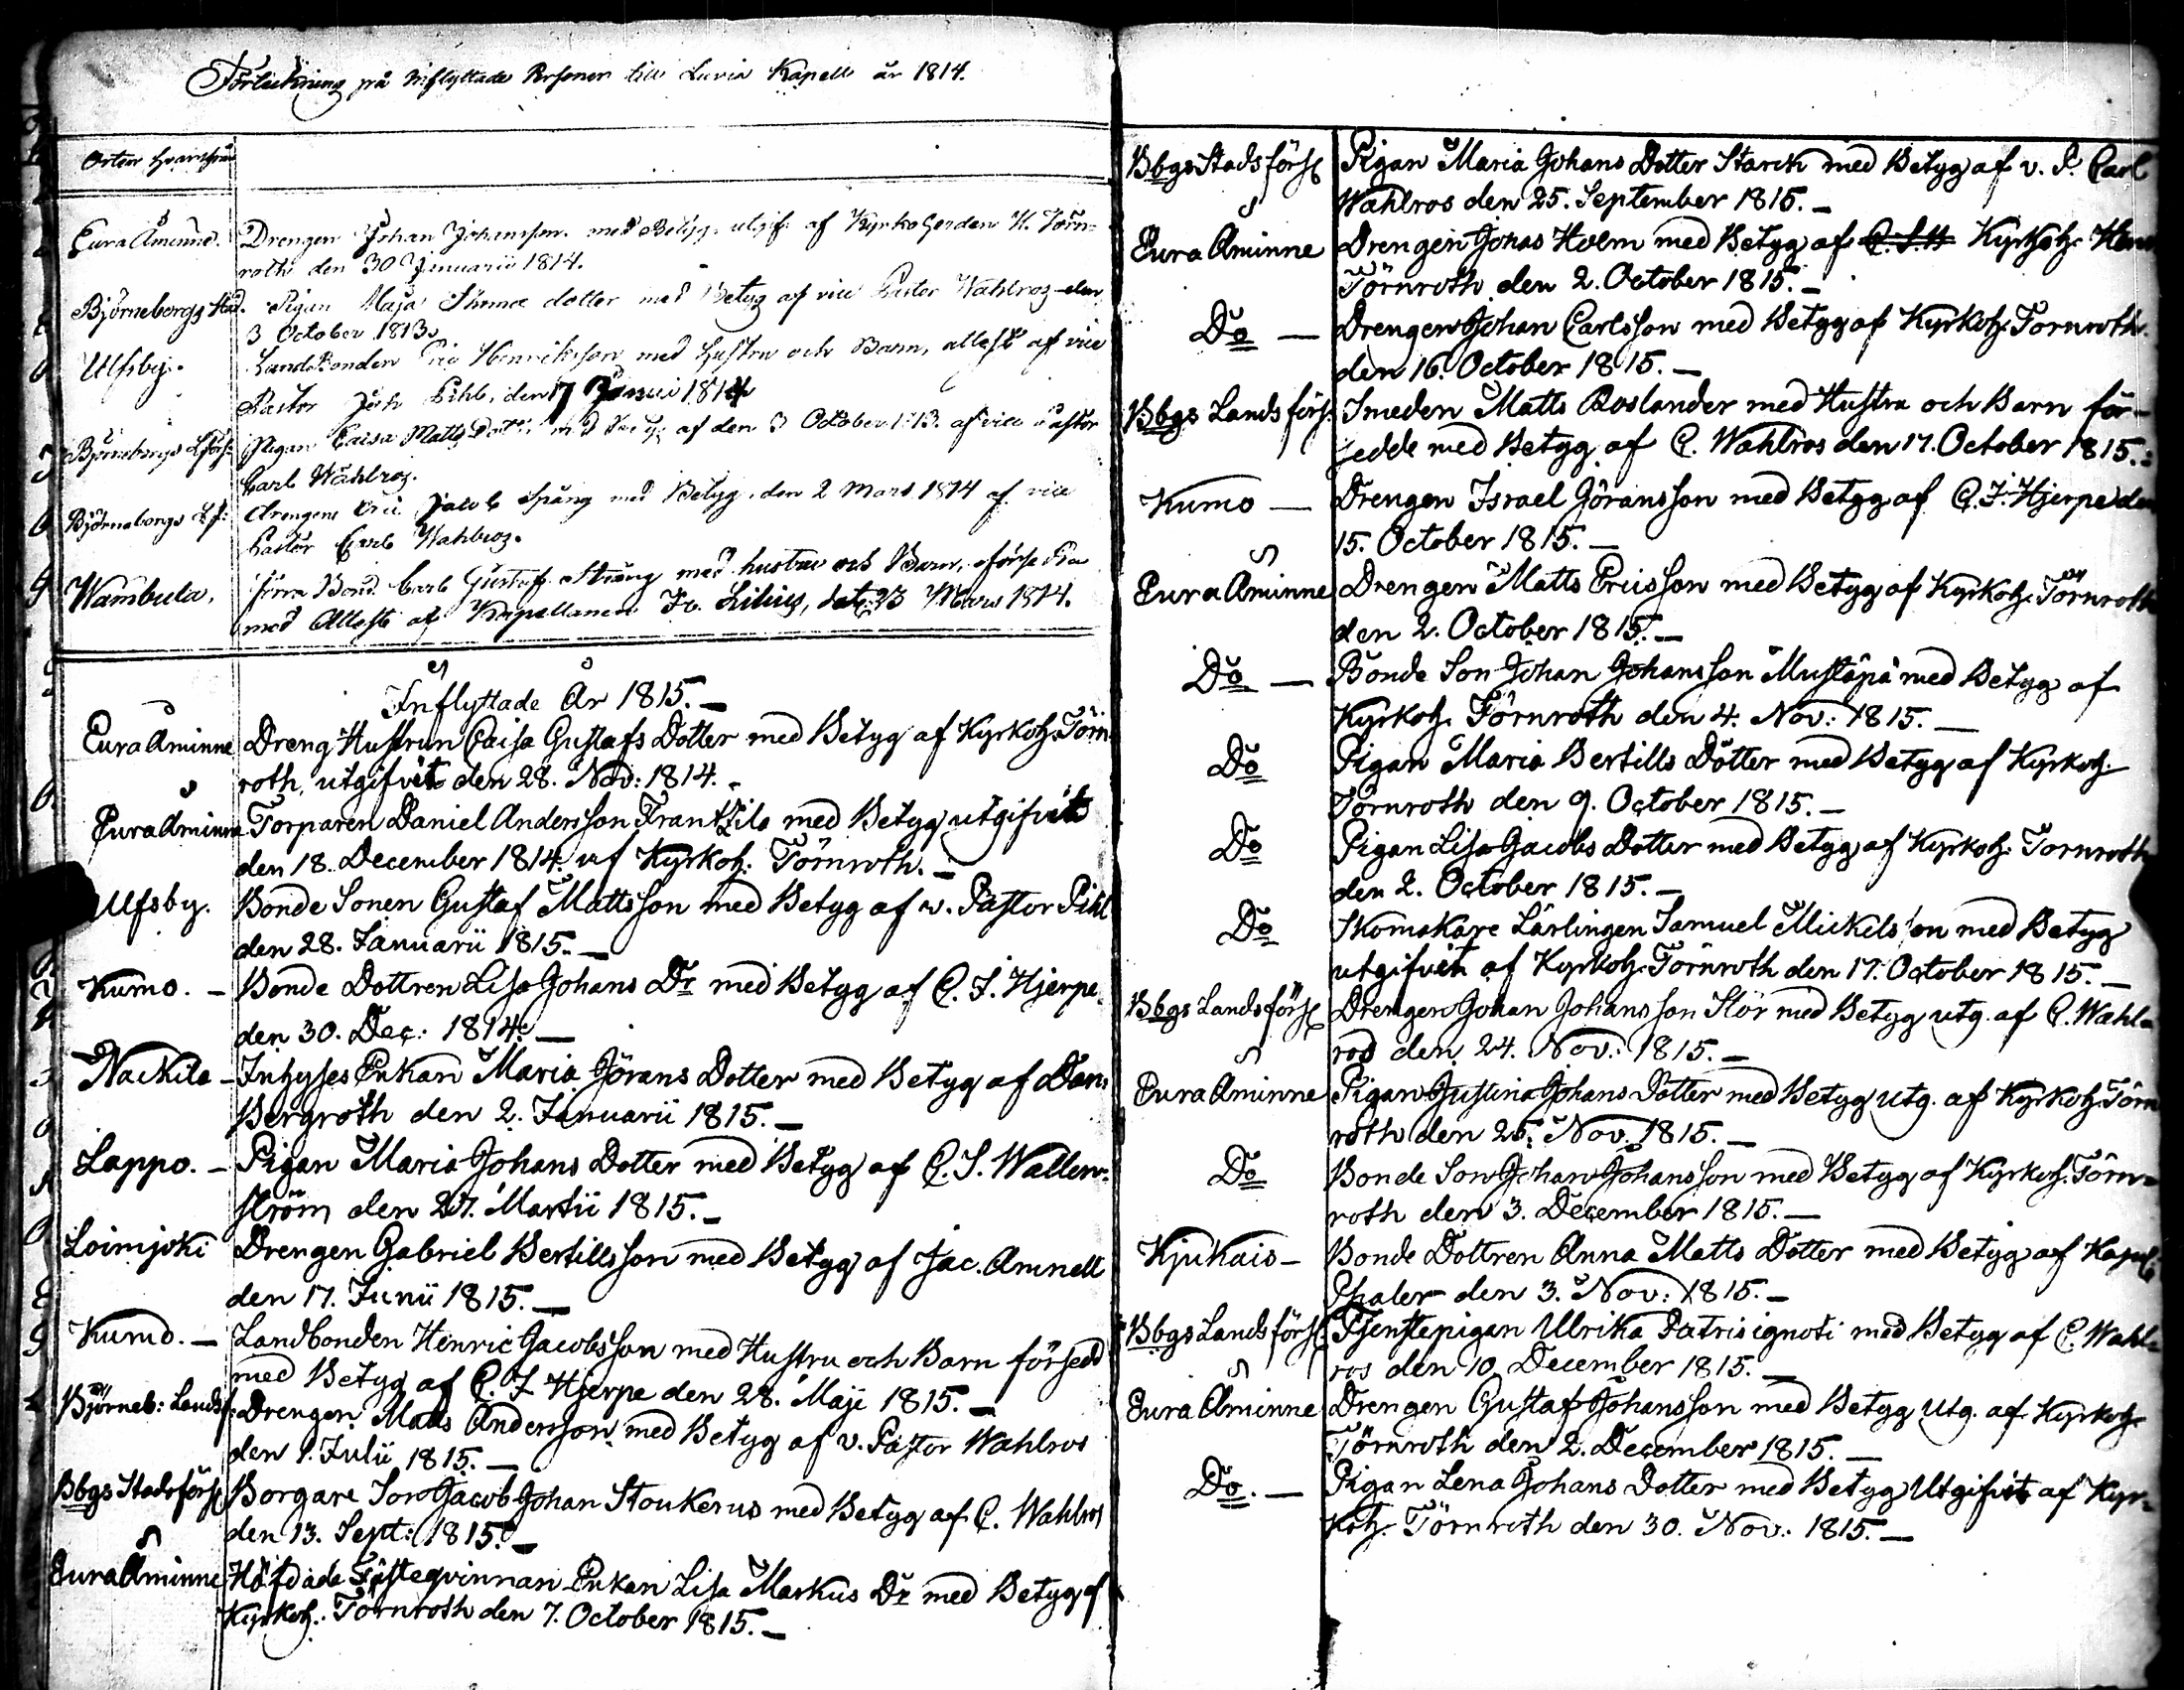 Förteckning på Inflyttade Personer till Luvia Kapell år 1814.
Orten hvarifrån
Eura Åminne. Drengen Johan Johansson med Betyg utgif. af Kyrkoherden H. Törn=
roth den 30 Januarii 1814.
Björneborgs Stad. Pigan Maja Thomæ dotter med Betyg af vice Pastor Wahlros den
3 October 1813.
Ulfsby. Landbonden Eric Henriksson med hustru och Barn, attest af vice
Pastor Joh Pihl, den 17 Junii 1814
Björneborgs Lförs: Pigan Caisa Matts Dotter med Betyg af den 3 October 1813. af vice Pastor
Carl Wahlros.
Björneborgs Lf: drengen Eric Jacob Spång med Betyg den 2 Mars 1814 af vice
Pastor Carl Wahlros.
Wambula, Bond. Carl Gustaf Sträng med hustru och Barn,
med Attest af Kapellanen Fr. Lilius, dat: 23 Mars 1814.
Inflyttade År 1815.—
Eura Åminne Dreng Hustrun Caisa Gustafs Dotter med Betyg af Kyrkoh: Törn
roth, utgifvit den 28. Nov: 1814.—
Eura Åminne Torparen Daniel Andersson Frantzila med Betyg utgifvit
den 18. December 1814. af Kyrkoh: Törnroth.—
Ulfsby. Bonde Sonen Gustaf Mattsson med Betyg af v. Pastor Pihl
den 28. Januarii 1815.—
Kumo. — Bonde Dottren Lisa Johans Dr med Betyg af C. J. Hjerpe
den 30. Dec: 1814.—
Nackila — Inhyses Enkan Maria Jörans Dotter med Betyg af Dan:
Bergroth den 2. Januarii 1815.—
Lappo. — Pigan Maria Johans Dotter med Betyg af C. S. Wallen=
ström den 27. Martii 1815.—
Loimjoki Drengen Gabriel Bertillsson med Betyg af Jac. Amnell
den 17. Junii 1815.—
Kumo. — Landbonden Henric Jacobsson med Hustru och Barn försedd
med Betyg af C. J. Hjerpe den 28. Maji 1815.—
Björneb: Landsf: Drengen Matts Andersson med Betyg af v. Pastor Wahlros
den 1. Julii 1815.—
Bbgs Stadsförs: Borgare Son Jacob Johan Stoukerus med Betyg af C. Wahlros
den 13. Sept: 1815.—
Eura Åminne Häfdade Fästeqvinnan Enkan Lisa Markus Dr med Betyg af
Kyrkoh: Törnroth den 7. October 1815.—
Bbgs Stadsförs: Pigan Maria Johans Dotter Starck med Betyg af v. P. Carl
Wahlros den 25. September 1815.—
Eura Åminne Drengen Jonas Holm med Betyg af Kyrkoh:
Törnroth den 2. October 1815.—
Do — Drengen Johan Carlsson med Betyg af Kyrkoh: Törnroth
den 16. October 1815.—
Bbgs Landsförs: Smeden Matts Roslander med Hustru och Barn för-
sedde med Betyg af C. Wahlros den 17. October 1815.
Kumo — Drengen Israel Göransson med Betyg af C. J. Hjerpe den
15. October 1815.—
Eura Åminne Drengen Matts Ericsson med Betyg af Kyrkoh: Törnroth
den 2. October 1815.—
Do — Bonde Son Johan Johansson Mustapä med Betyg af
Kyrkoh: Törnroth den 4. Nov: 1815.—
Do Pigan Maria Bertills Dotter med Betyg af Kyrkoh:
Törnroth den 9. October 1815.—
Do Pigan Lisa Jacobs Dotter med Betyg af Kyrkoh: Törnroth
den 2. October 1815.—
Do Skomakare Lärlingen Samuel Mickelsson med Betyg
utgifvit af Kyrkoh: Törnroth den 17. October 1815.—
Bbgs Landsförs: Drengen Johan Johansson Stör med Betyg utg. af C. Wahl=
ros den 24. Nov: 1815.—
Eura Åminne Pigan Justina Johans Dotter med Betyg utg. af Kyrkoh: Törn
roth den 25. Nov. 1815.—
Do Bonde Son Johan Johansson med Betyg af Kyrkoh: Törn=
roth den 3. December 1815.—
Kjukais — Bonde Dottren Anna Matts Dotter med Betyg af Kapel:
Thaler den 3. Nov: 1815.—
Bbgs Landsförs: Tjenstepigan Ulrika Patris ignoti med Betyg af C. Wahl=
ros den 10. December 1815.—
Eura Åminne Drengen Gustaf Johansson med Betyg utg. af Kyrkoh:
Törnroth den 2. December 1815.—
Do. — Pigan Lena Johans Dotter med Betyg Utgifvit af Kyr=
koh: Törnroth den 30. Nov: 1815.—